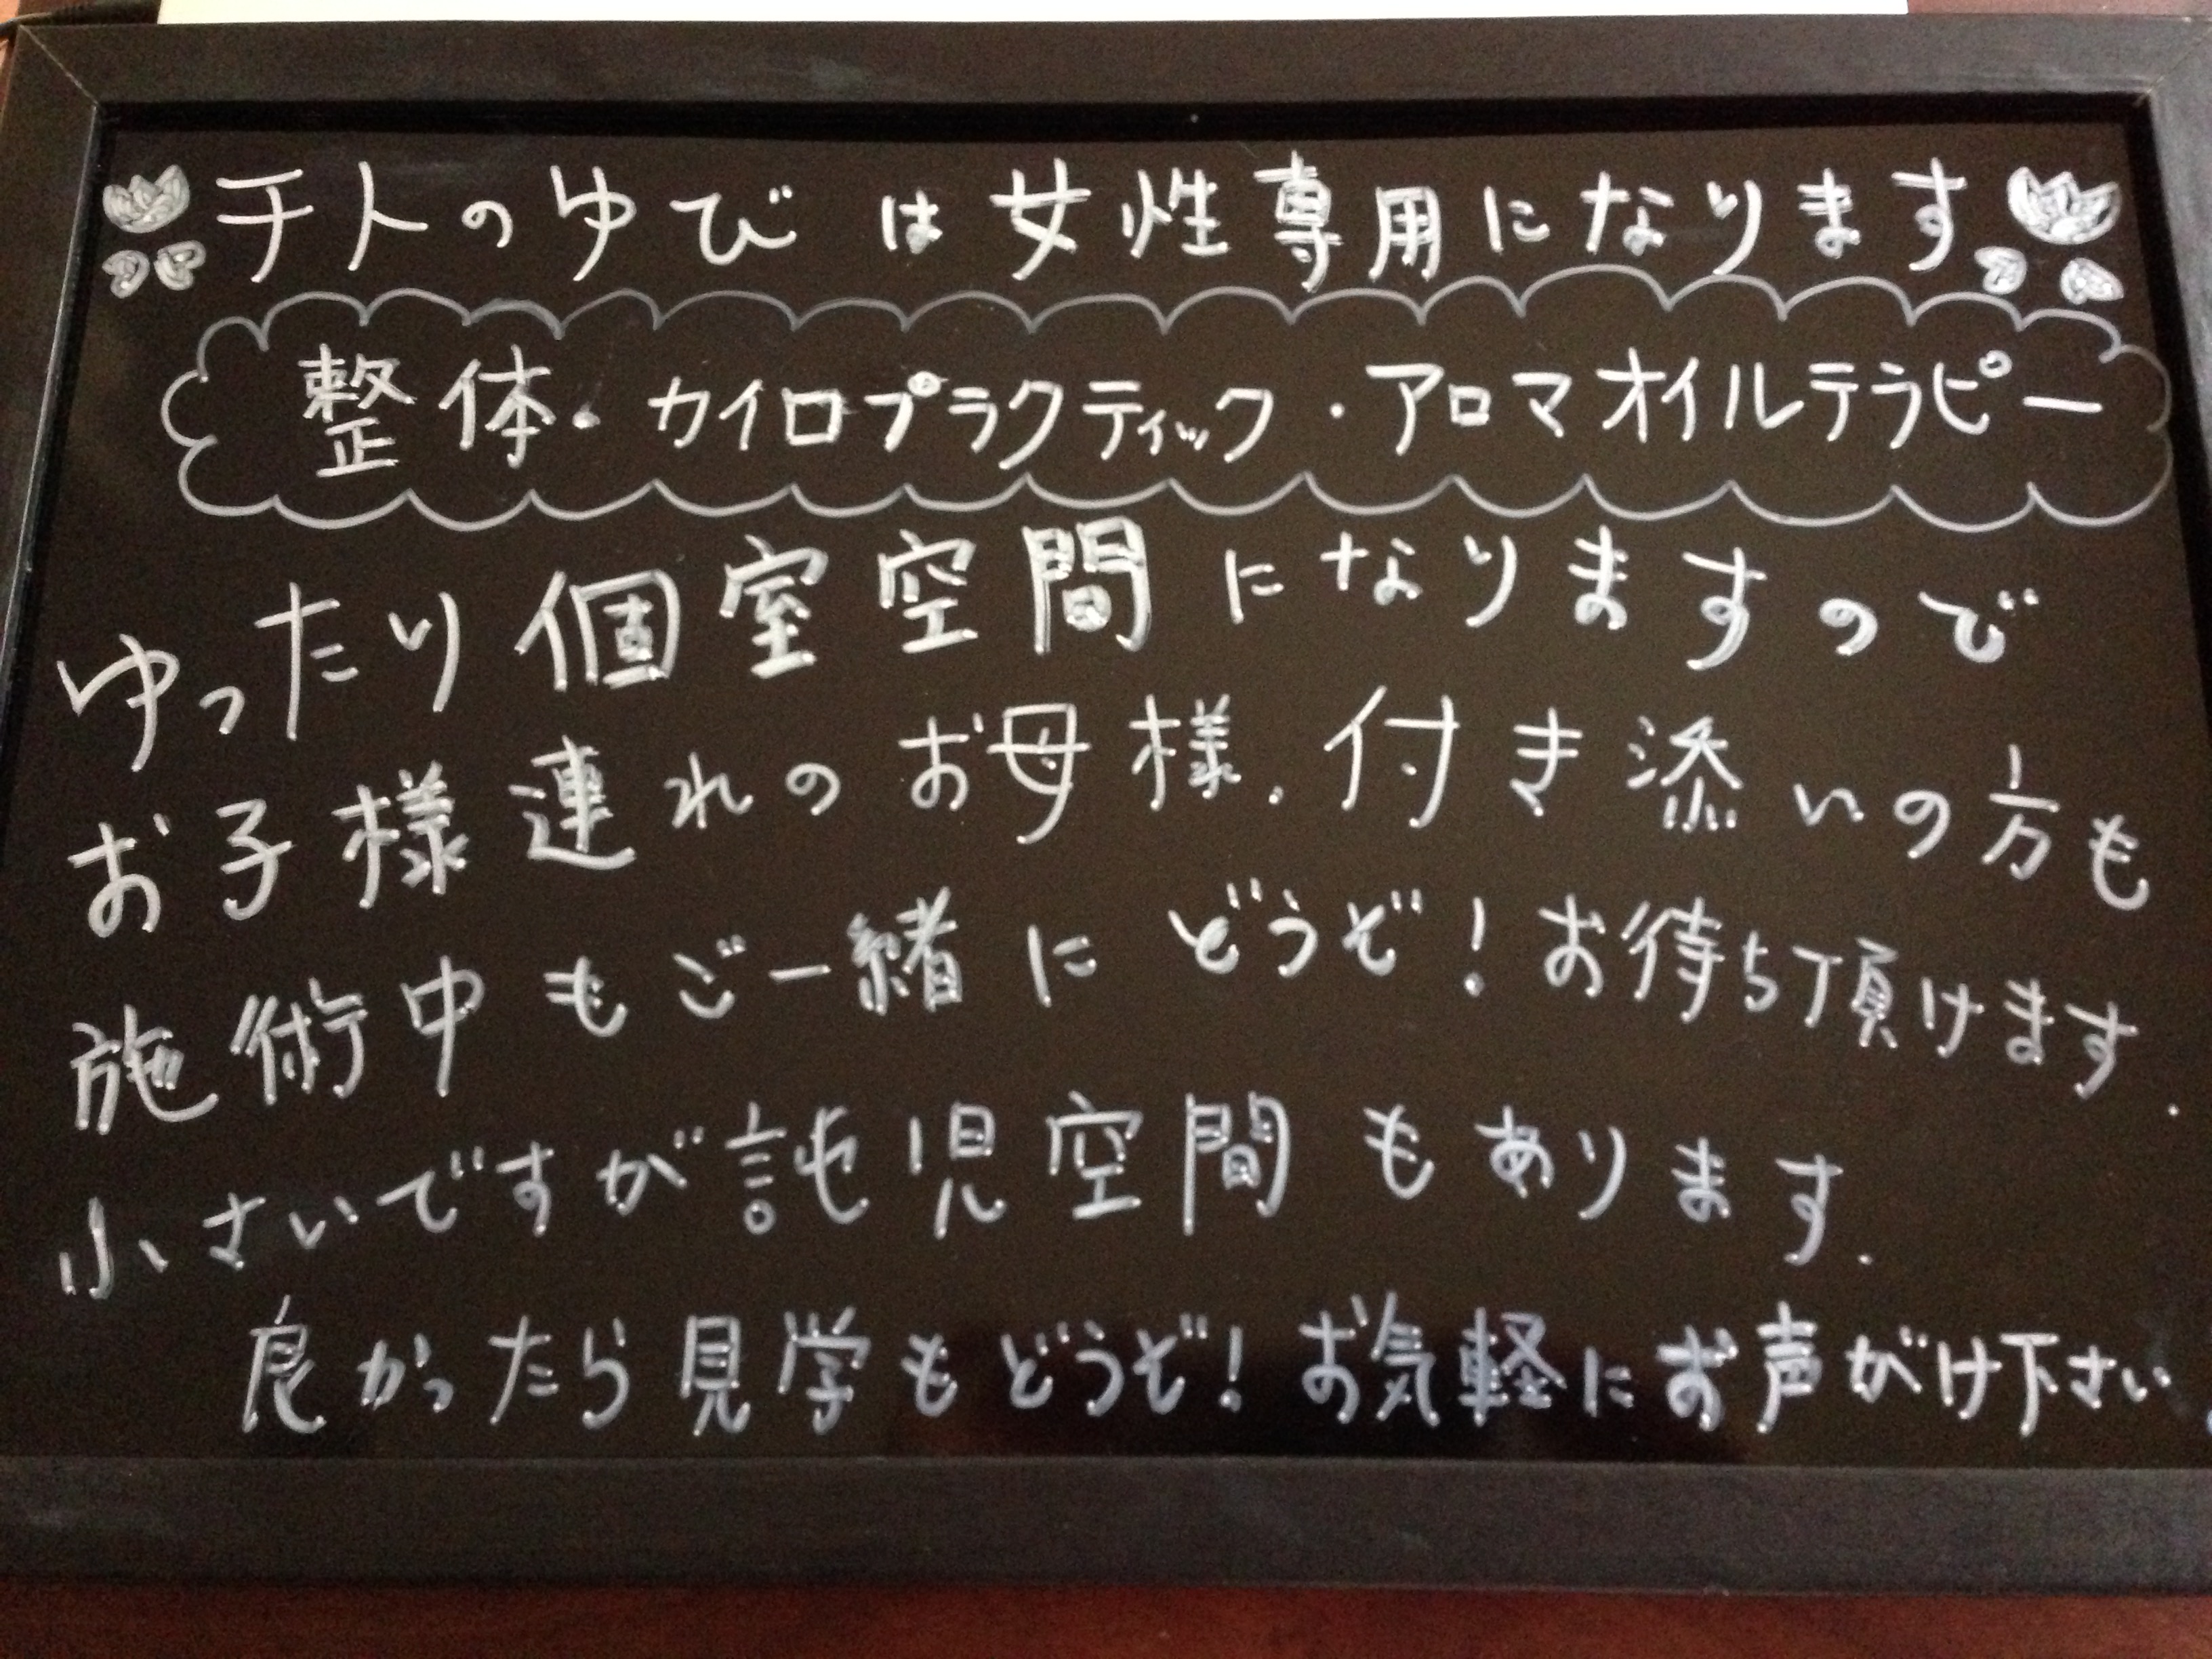 天使のゆび は女性専用になります。
整体・カイロプラクティック・アロマオイルテラピー
ゆったり個室空間になりますので
お子様連れのお母様.付き添いの方も
施術中もご一緒にどうぞ!お待ち頂けます.
小さいですが託児空間もあります.
良かったら見学もどうぞ!お気軽にお声がけ下さい.